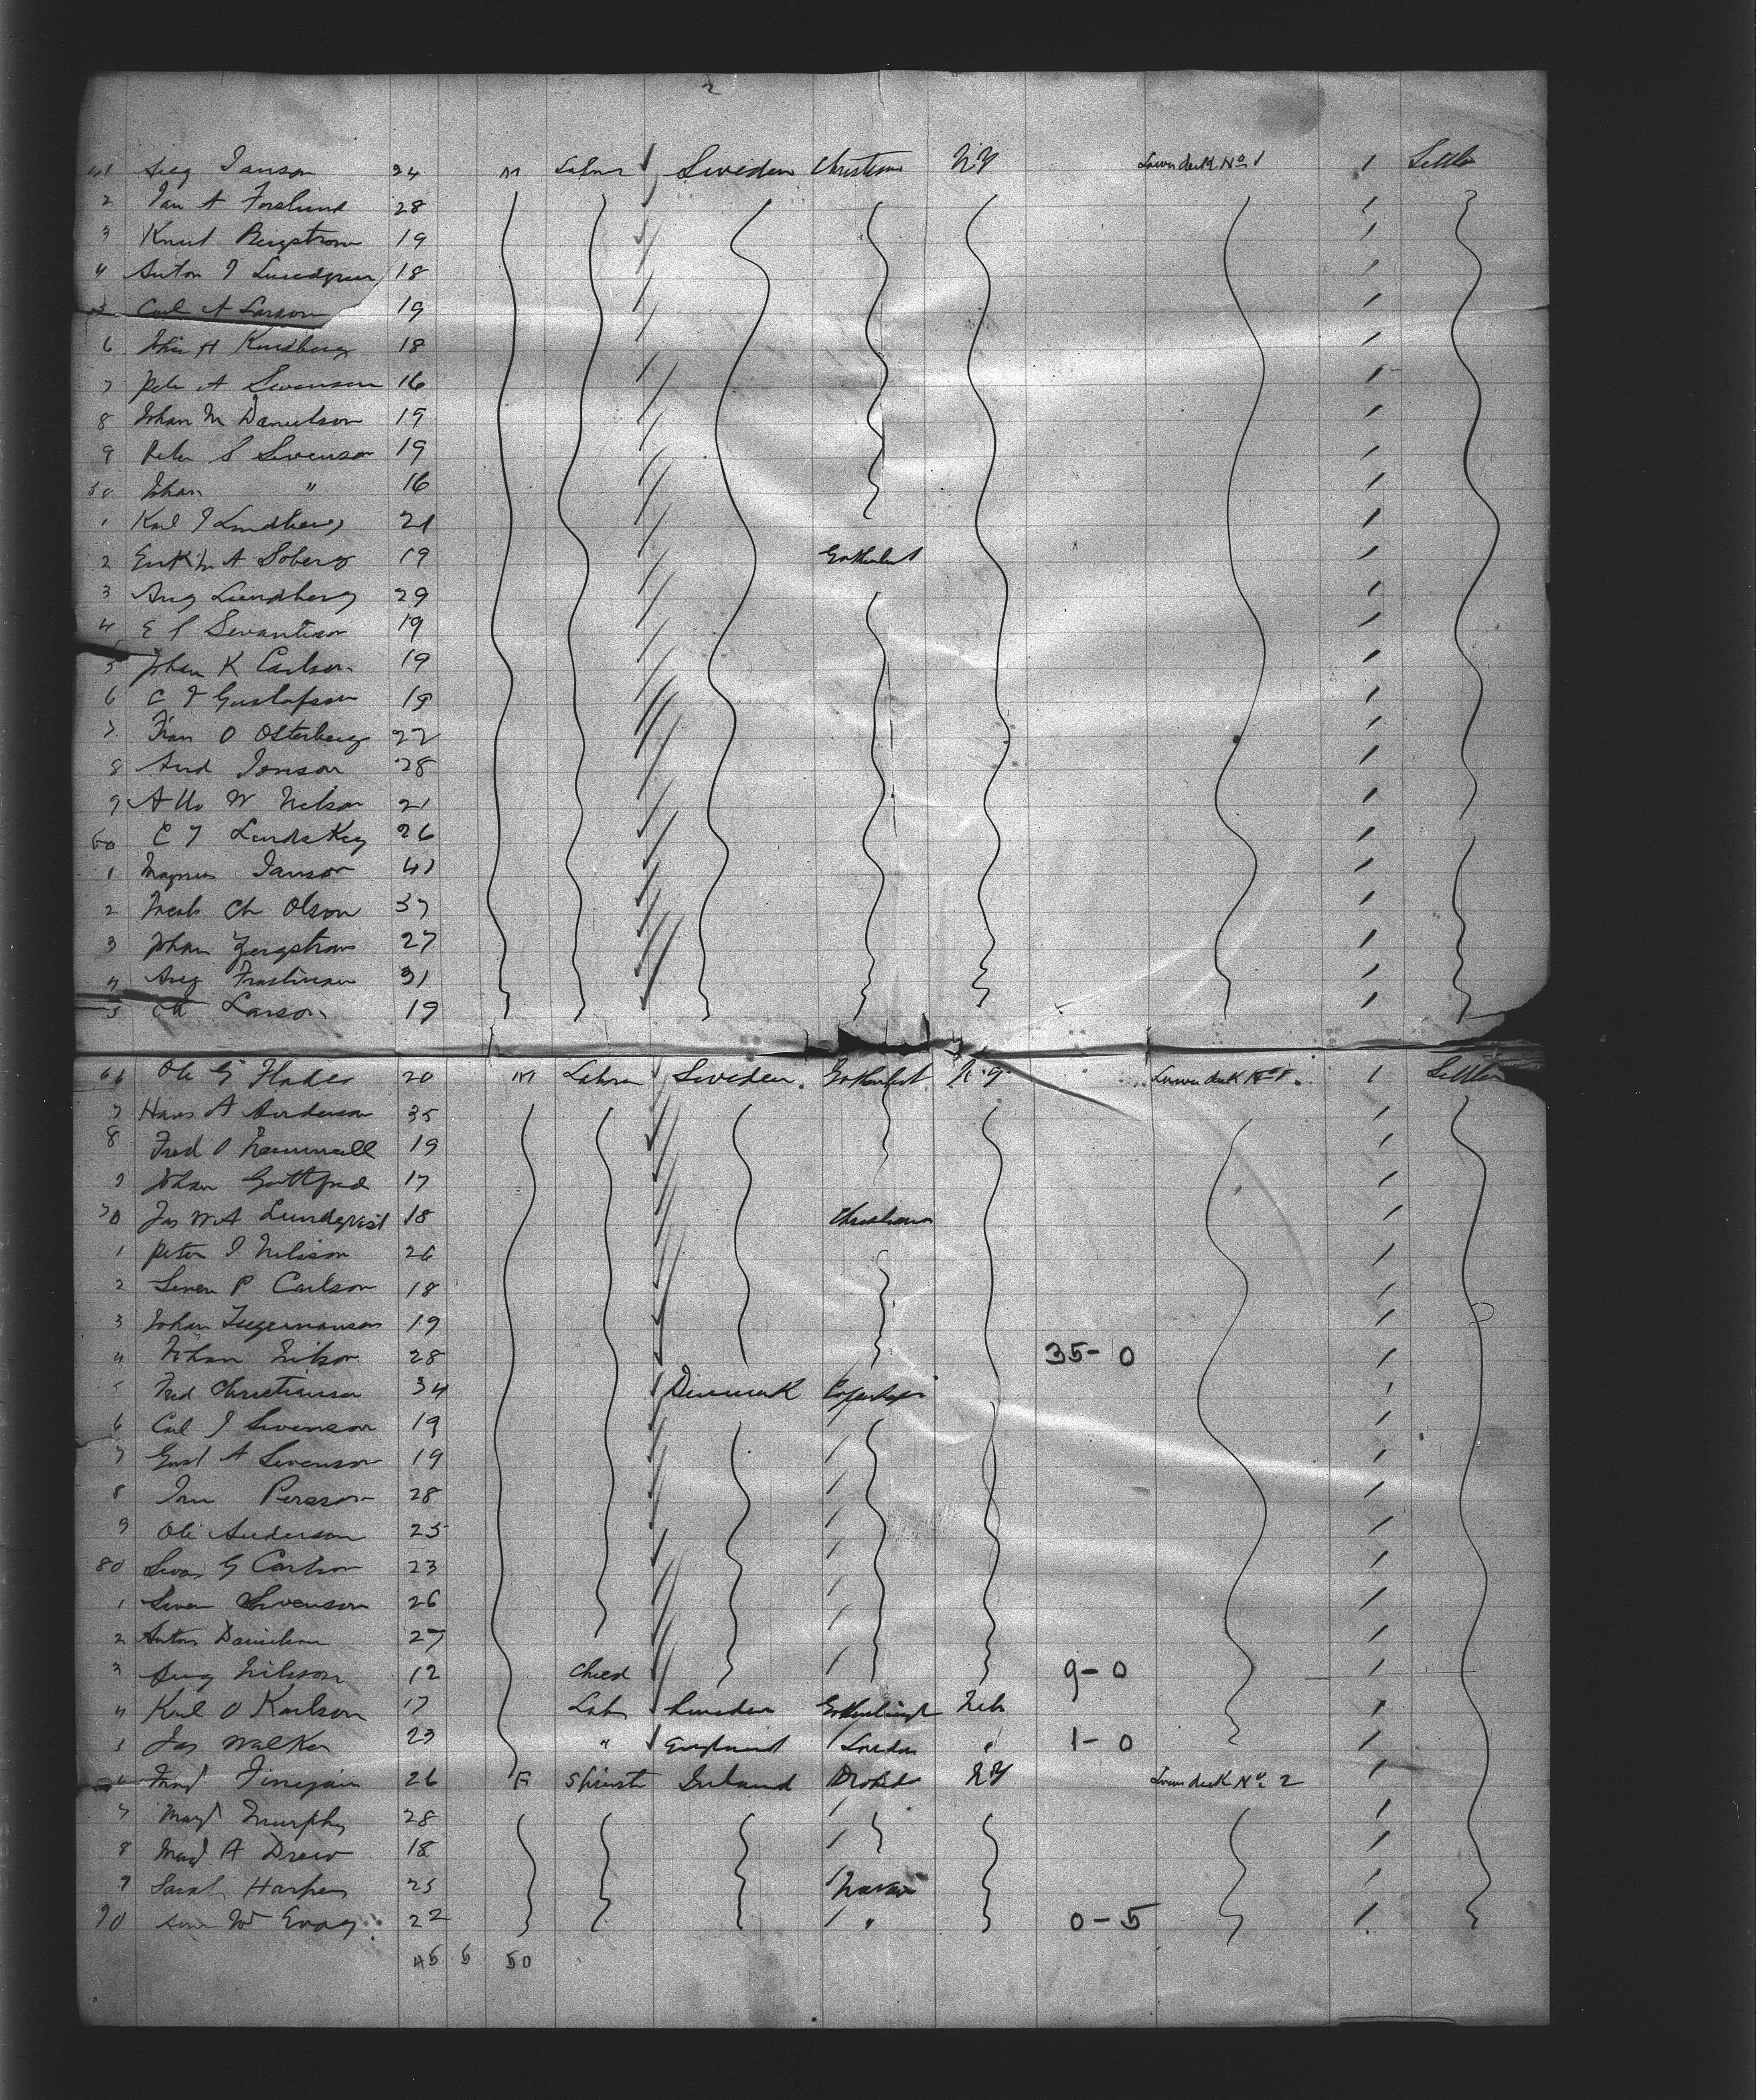 2
41 Aug Janson 24 M Labor Sweden Christiana N.Y Lower deck No 1 1 Settler
2 Jan A Forslund 28
3 Knut Bergstrom 19
4 Anton J Lundgren 18
5 Carl A Larson 19
6 John H Kindberg 18
7 Peter A Swenson 16
8 Johan M Danielson 19
9 Peter S Swenson 19
50 Johan " 16
1 Karl J Lindberg 21
2 A Soberg 19 Gothenbert
3 Aug Lundberg 29
4 E P Swantison 19
5 Johan K Carlson 19
6 C F Gustafson 19
7 Fran O Osterberg 22
8 And Jonson 28
9 W Nelson 21
60 C J 26
1 Magnus Janson 41
2 Ch Olson 37
3 Johan 27
4 Aug 31
5 Larson 19
66 Ole G 20 M Labor Sweden Gothenbert N.Y Lower deck No 1 1 Settler
7 Hans A Anderson 35
8 Fred O 19
9 Johan Gottfred 17
70 Jas W A Lundqvist 18 Christiana
1 Peter J Nilsson 26
2 Sven P Carlson 18
3 Johan 19
4 Johan Nilson 28 35-0
5 Fred Christianson 34 Denmark Copenhagen
6 Carl J Swenson 19
7 Gust A Swenson 19
8 Jan Persson 28
9 Ole Anderson 25
80 Swan G Carlson 23
1 Swen Swenson 26
2 Anton Danielson 27
3 Aug Nilsson 12 Child 9-0
4 Karl O Karlson 17 Lab Sweden Gothenburgh Neb
5 Jas Walker 23 " England London " 1-0
6 Mary Finegan 26 F Spinster Ireland N.Y Lower deck No 2
7 Mary Murphy 28
8 Mary A Drew 18
9 Sarah Harper 25
90 22 " 0-5
45 5 50